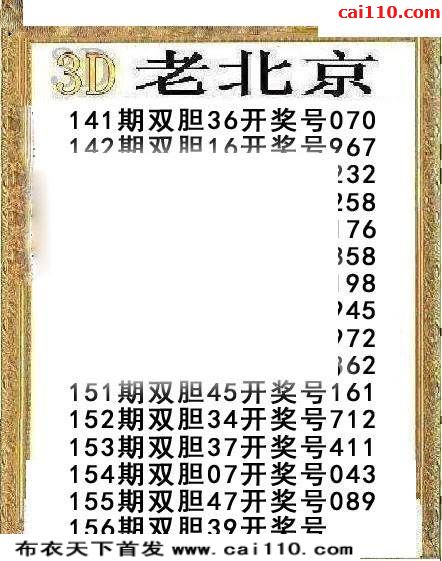 cai110.com
3D 老北京
141期双胆36开奖号070
142期双胆16开奖号967
232
258
176
858
198
945
972
362
151期双胆45开奖号161
152期双胆34开奖号712
153期双胆37开奖号411
154期双胆07开奖号043
155期双胆47开奖号089
156期双胆39开奖号
布衣天下首发 www.cai110.com